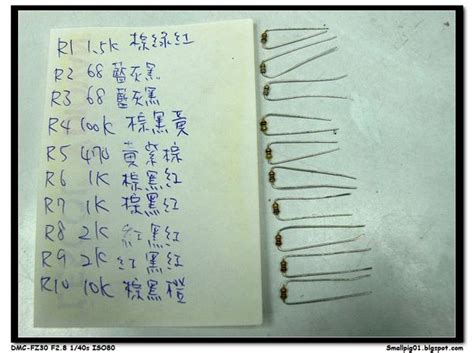 R1 1.5K 棕綠紅
R2 68 藍灰黑
R3 68 藍灰黑
R4 100K 棕黑黃
R5 470 黃紫棕
R6 1K 棕黑紅
R7 1K 棕黑紅
R8 2K 紅黑紅
R9 2K 紅黑紅
R10 10K 棕黑橙
DMC-FZ30 F2.8 1/40s ISO80
Smallpig01.blgspot.com